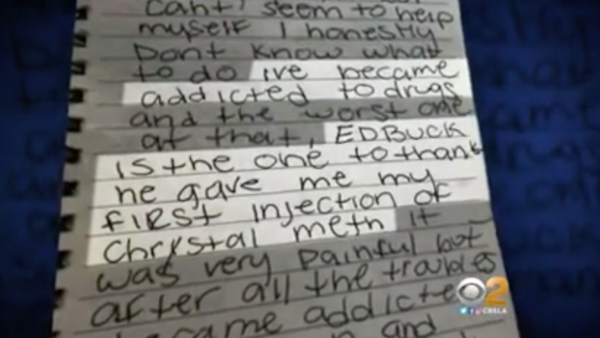 can't seem to help
myself I honestly
Dont know what
to do ive became
addicted to drugs
and the worst one
at that, ED BUCK
is the one to thank
he gave me my
FIRST injection of
chrystal meth it
was very painful but
after all the troubles
became addicted
and
CBS 2
CBSLA